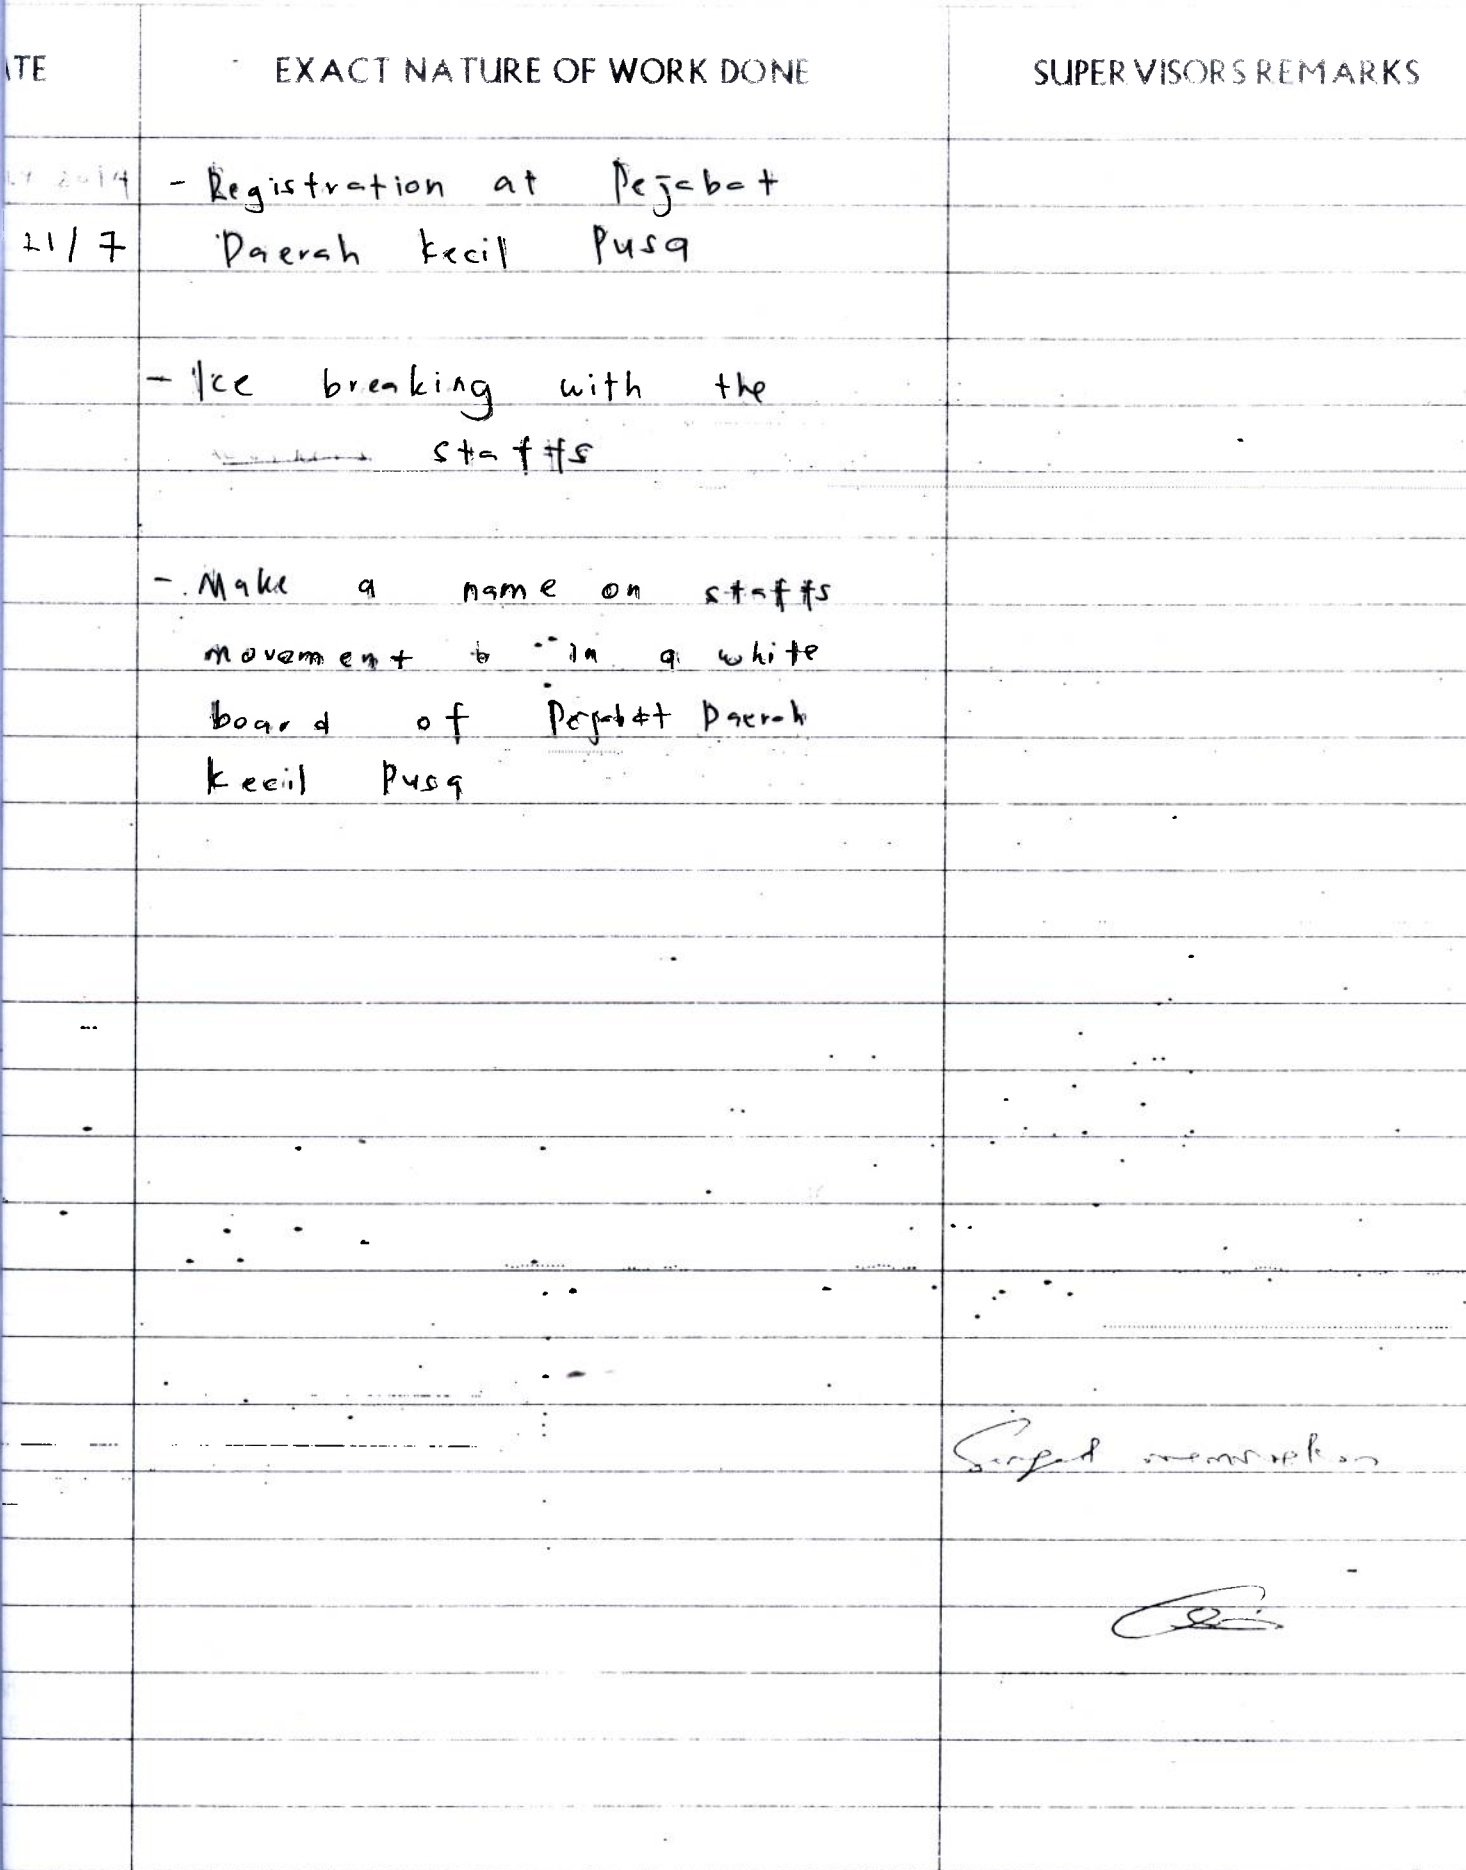 ATE EXACT NATURE OF WORK DONE SUPERVISORS REMARKS
- Registration at Pejabat
21/7 Daerah Kecil Pusa
- Ice breaking with the
staffs
- Make a name on staffs
movement in a white
board of Pejabat Daerah
Kecil Pusa